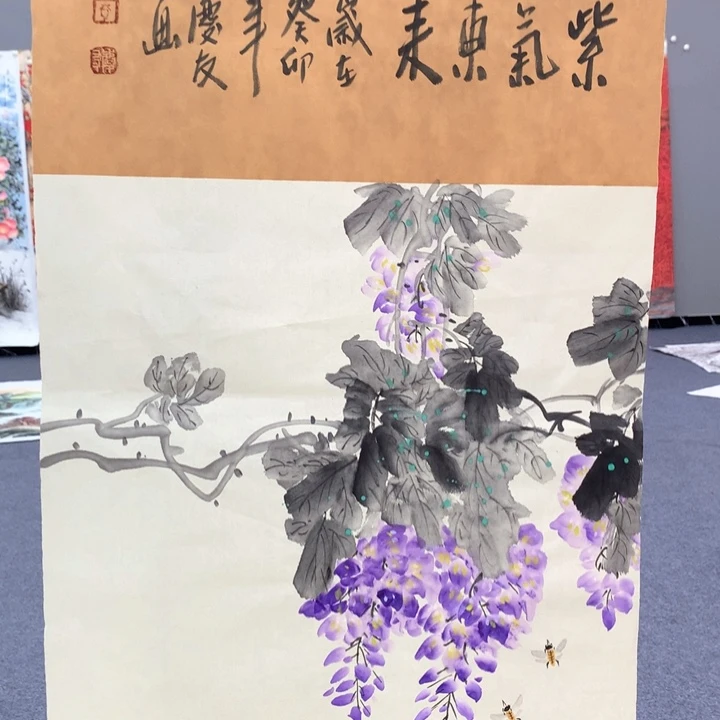 紫
氣
東
来
歲在
癸卯
年
慶友
画